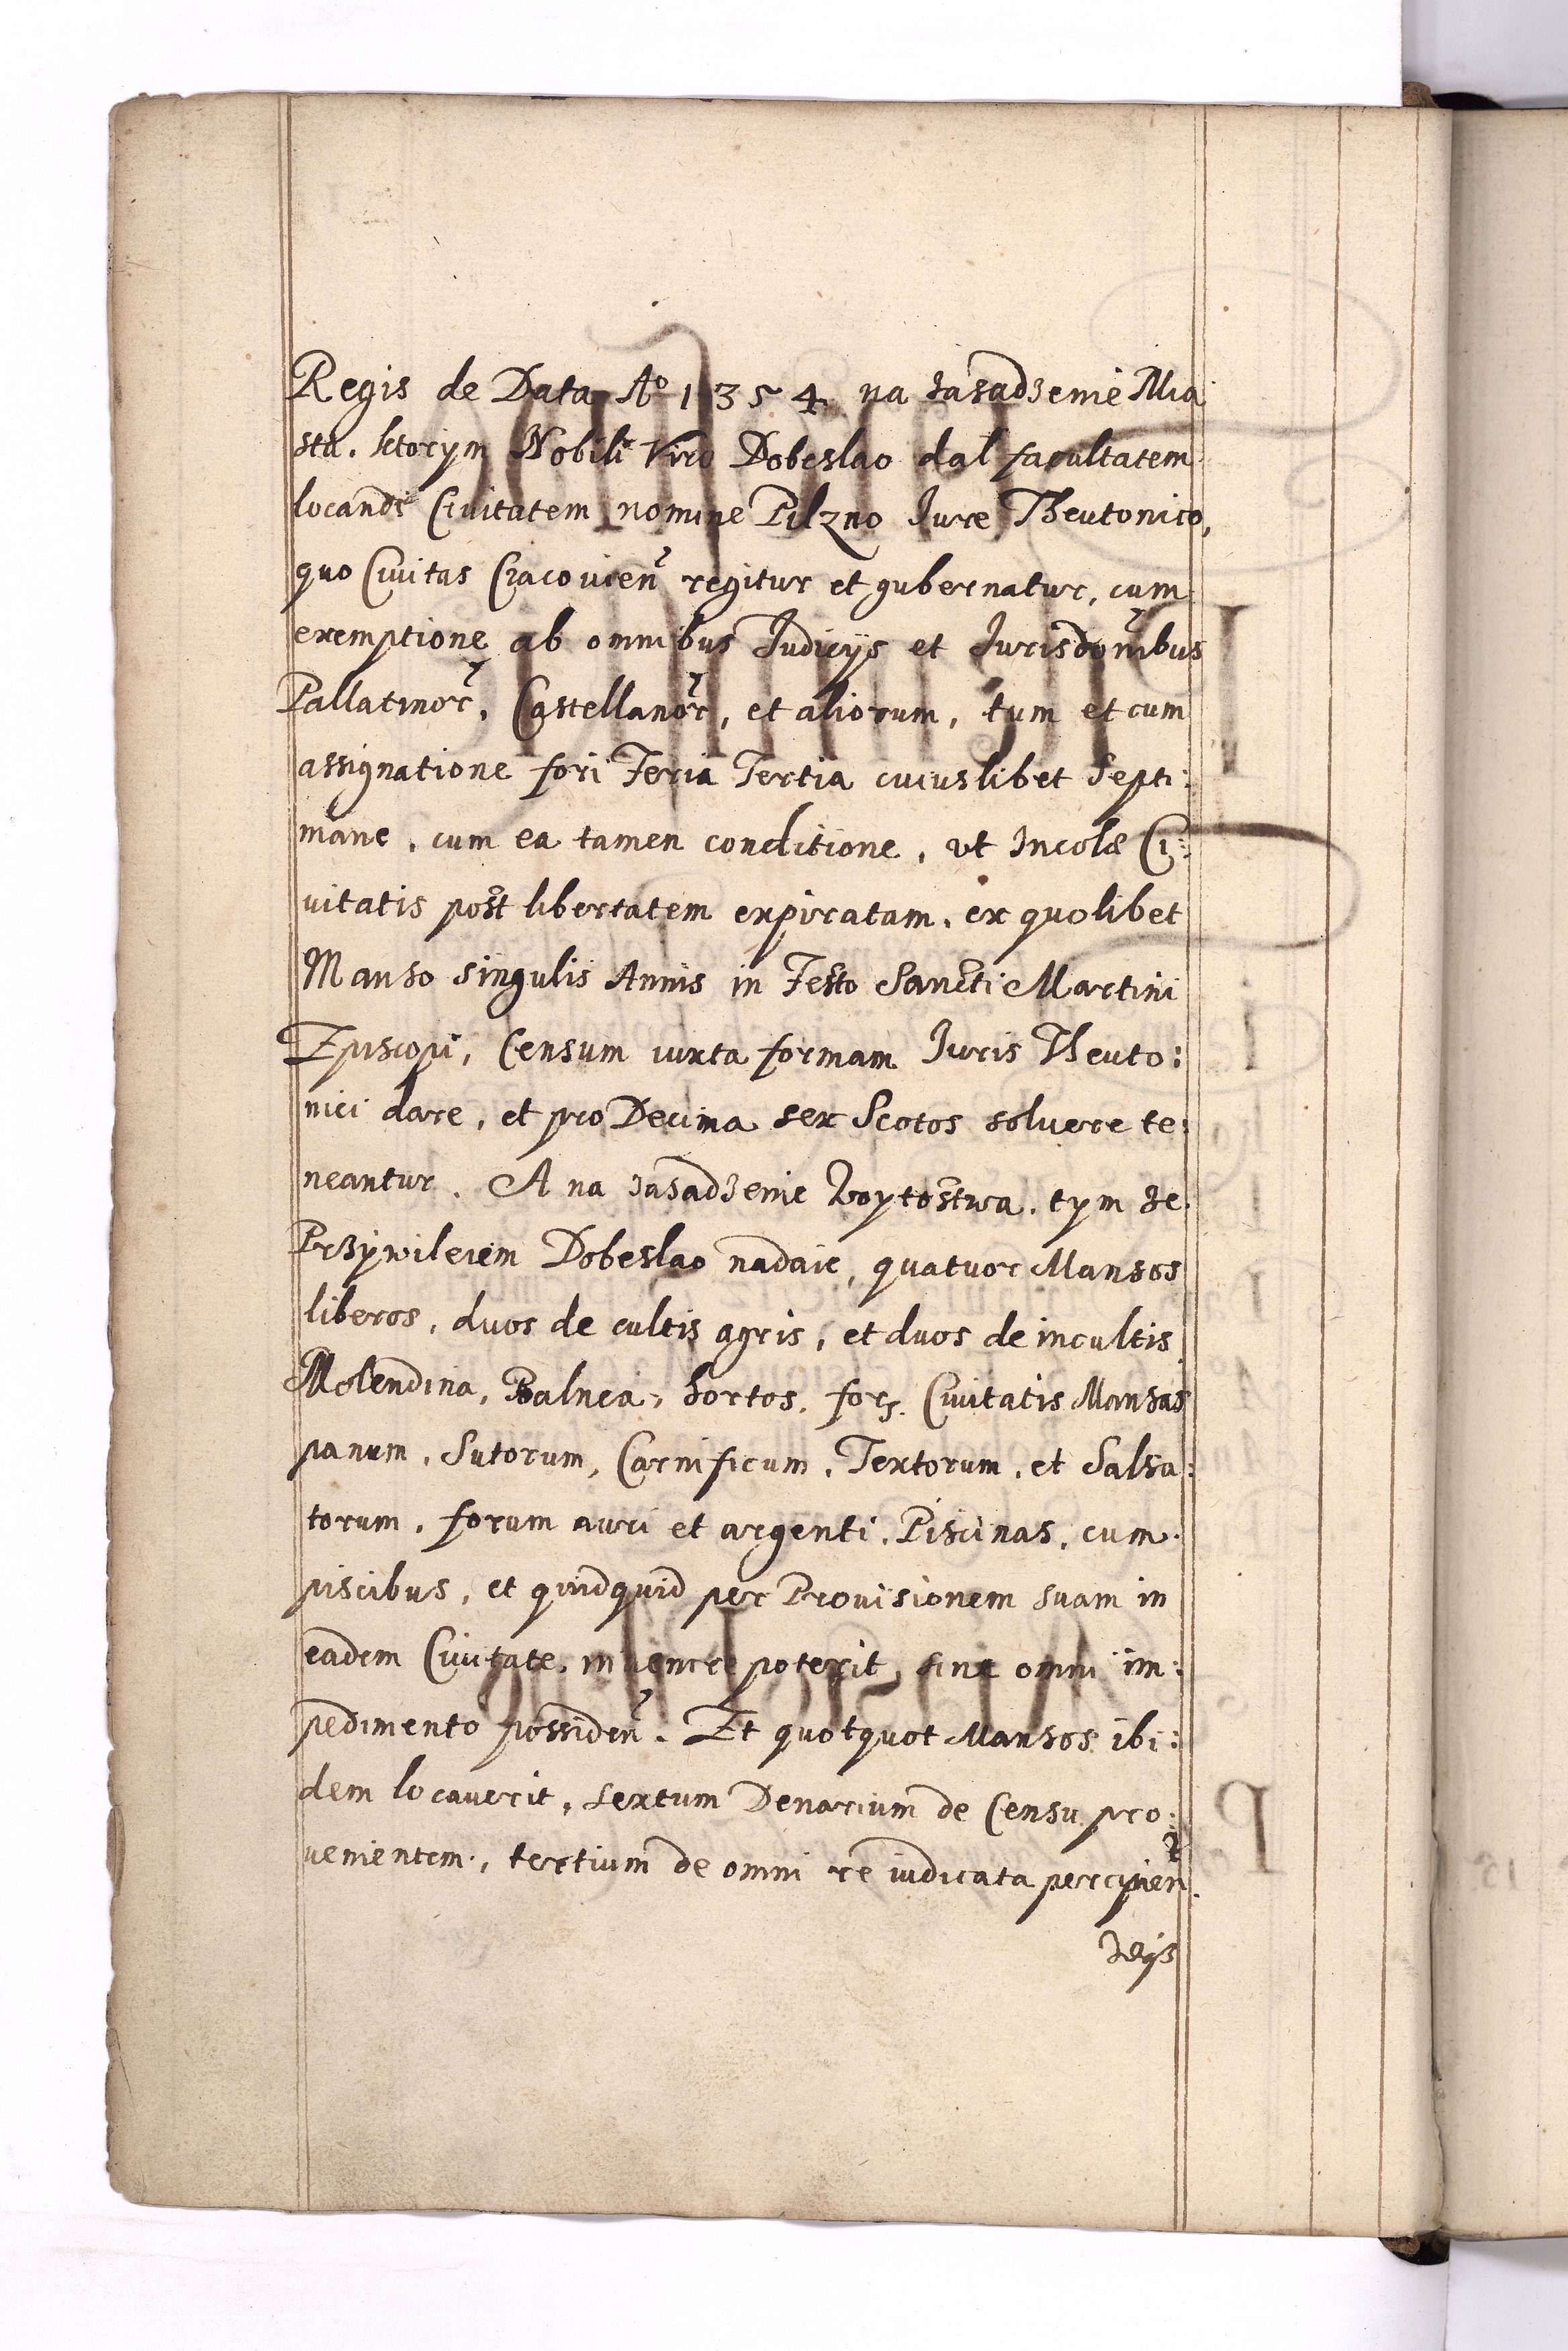 Regis de Data Aº 1354 na zasadzenie Mia
sta. ktorym Nobili Viro Dobeslao dal facultatem
locandi Ciuitatem nomine Pilzno Iure Theutonico,
quo Ciuitas Cracouien̄ regitur et gubernatur, cum
exemptione ab omnibus Iudicijs et Iurisdōnibus
Pallatinor̄, Castellanor̄, et aliorum, tum et cum
assignatione fori Feria Tertia cuiuslibet Septi:
mane, cum ea tamen conditione, vt Incolæ Ci:
uitatis post libertatem expiratam, ex quolibet
Manso singulis Annis in Festo Sancti Martini
Episcopi, Censum iuxta formam Iuris Theuto:
nici dare, et pro Decima sex Scotos soluere te:
neantur. A na zasadzenie Woytostwa, tym ze
Przywileiem Dobeslao nadaie, quatuor Mansos
liberos, duos de cultis agris, et duos de incultis
Molendina, Balnea, hortos, Ciuitatis Mensas
panum, Sutorum, Carnificum, Textorum, et Salsa:
torum, forum auri et argenti, Piscinas, cum
piscibus, et quidquid per Prouisionem suam in
eadem Ciuitate, inuenire poterit, sine omni im:
pedimento possiden̄. Et quotquot Mansos ibi:
dem locauerit, sextum Denarium de Censu pro:
uenientem, tertium de omni re iudicata percipien̄.